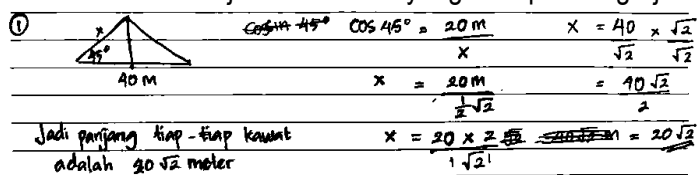 ① x 45° 40 M
cos 45° = 20 m / x
x = 20 m / ½√2
x = 20 × 2 / 1√2
x = 40 / √2 × √2 / √2
= 40√2 / 2
= 20√2
Jadi panjang tiap-tiap kawat
adalah 20 √2 meter